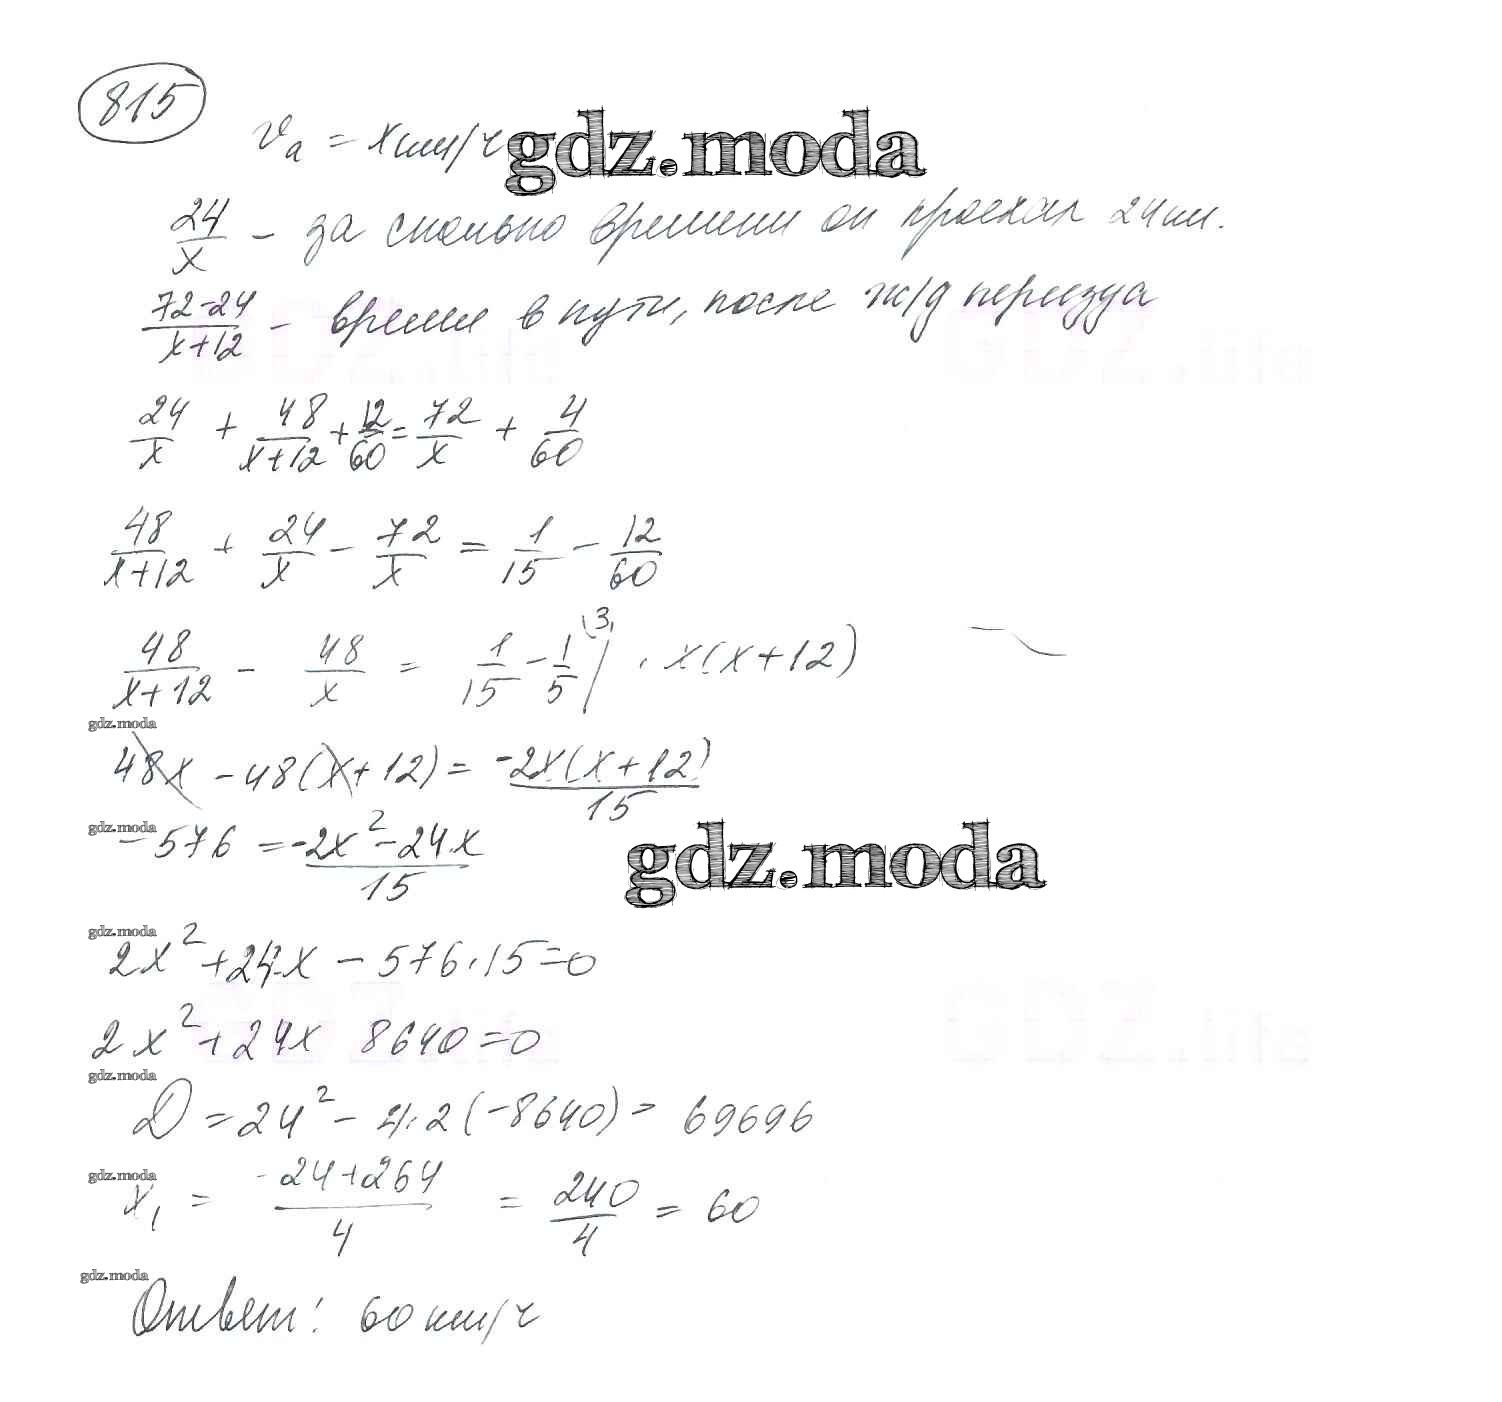 815
vₐ = x км/ч gdz.moda
24/x – за сколько времени он проехал 24 км.
72-24/x+12 – время в пути, после ж/д переезда
24/x + 48/x+12 + 12/60 = 72/x + 4/60
48/x+12 + 24/x – 72/x = 1/15 – 12/60
48/x+12 – 48/x = 1/15 – 1/5 (3, | · x(x+12)
gdz.moda
48x – 48(x+12) = -2x(x+12)/15
gdz.moda
– 576 = -2x² – 24x/15
gdz.moda
gdz.moda
2x² + 24x – 576 · 15 = 0
2x² + 24x 8640 = 0
gdz.moda
D = 24² – 4·2(-8640) = 69696
gdz.moda
x₁ = -24+264/4 = 240/4 = 60
gdz.moda
Ответ: 60 км/ч